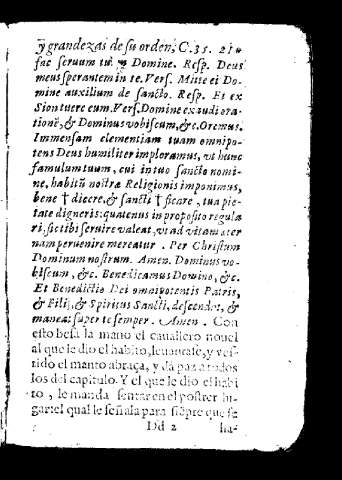 y grandezas de su orden, C. 35. 210
fac seruum tuũ Domine. Resp. Deus
meus sperantem in te. Vers. Mitte ei Do-
mine auxilium de sancto. Resp. Et ex
Sion tuere eum. Vers. Domine exaudi ora-
tionẽ, & Dominus vobiscum, &c. Oremus.
Immensam clementiam tuam omnipo-
tens Deus humiliter imploramus, vt hunc
famulum tuum, cui in tuo sancto nomi-
ne, habitũ nostræ Religionis imponimus,
bene † diecre, & sancti † ficare, tua pie-
tate digneris: quatenus in proposito regula
ri, sic tibi seruire valeat, vt ad vitam æter
nam peruenire mereatur. Per Christum
Dominum nostrum. Amen. Dominus vo-
biscum, &c. Benedicamus Domino, &c.
Et Benedictio Dei omnipotentis Patris,
& Filij, & Spiritus Sancti, descendat, &
maneat super te semper. Amen. Con
esto besa la mano el cauallero nouel
al que le dio el habito, leuantase, y ves-
tido el manto abraça, y dà paz a todos
los del capitulo. Y el que le dio el habi
to, le manda sentar en el postrer lu-
gar, el qual le señala para siẽpre que se
Dd 2 ha-